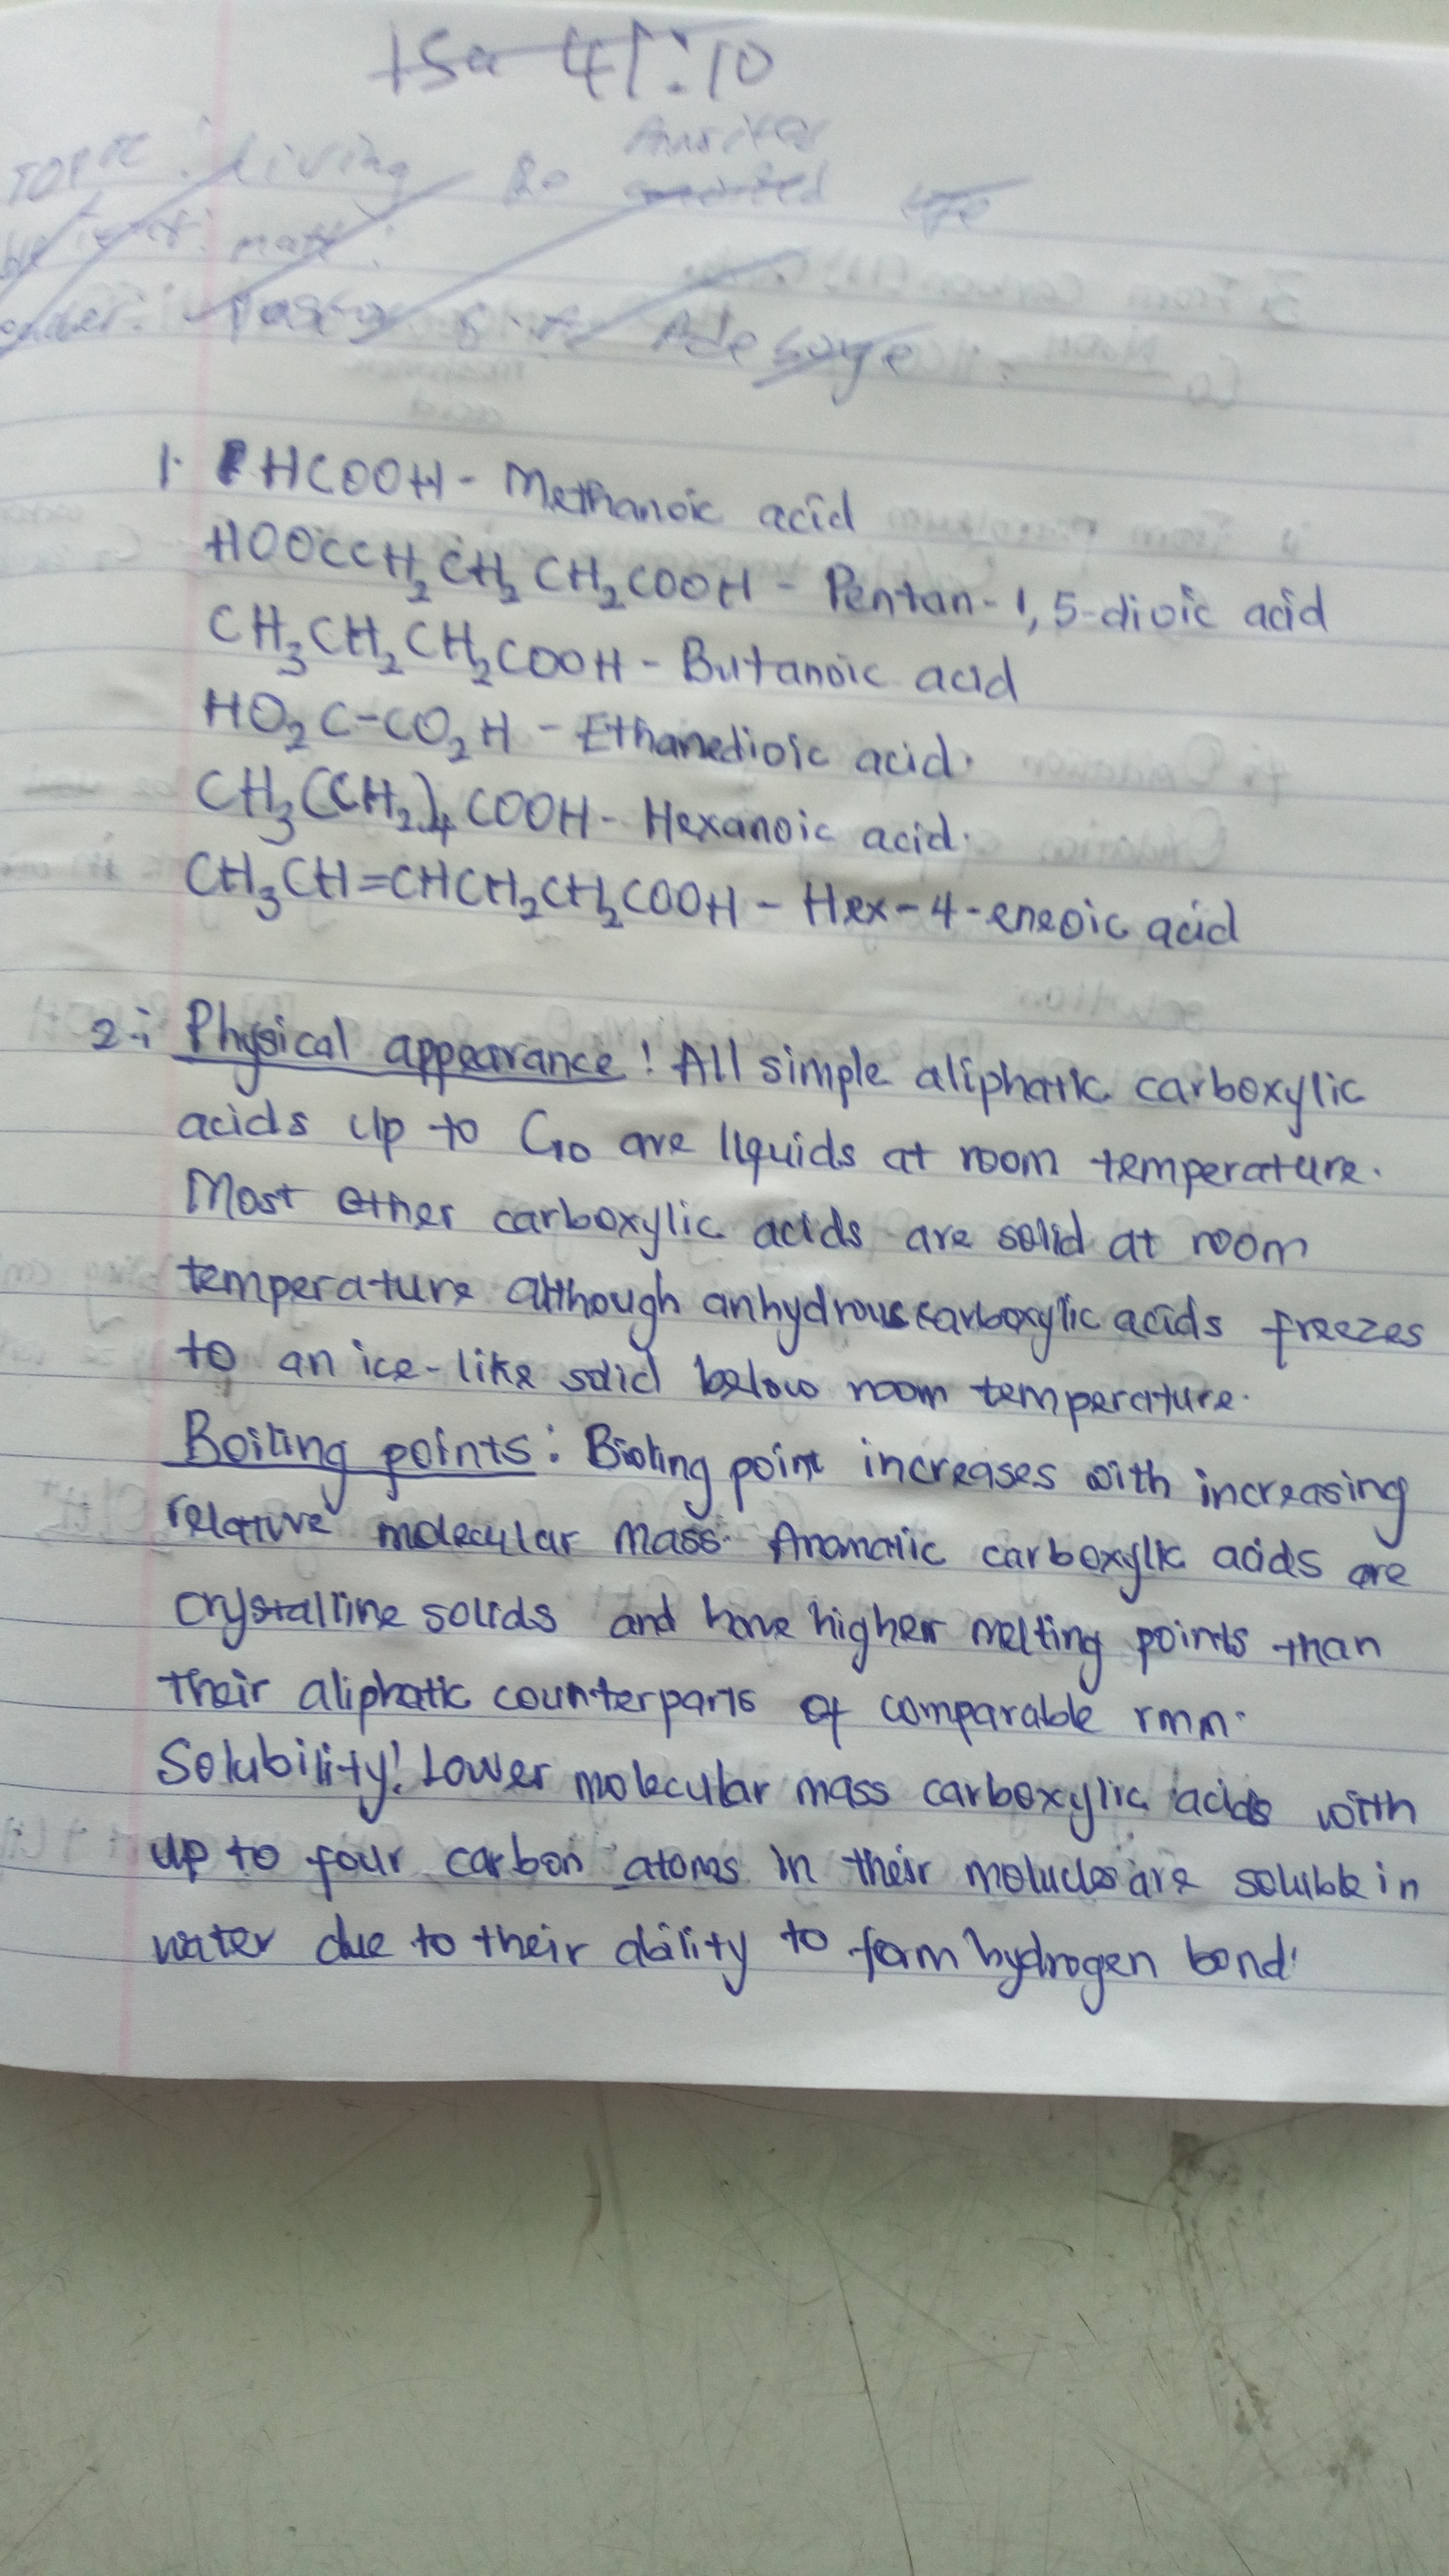 Isa 41:10
TOPIC: living
1. HCOOH - Methanoic acid
HOOCCH₂CH₂CH₂COOH - Pentan-1,5-dioic acid
CH₃CH₂CH₂COOH - Butanoic acid
HO₂C-CO₂H - Ethanedioic acid.
CH₃(CH₂)₄COOH - Hexanoic acid.
CH₃CH=CHCH₂CH₂COOH - Hex-4-eneoic acid
2. Physical appearance: All simple aliphatic carboxylic
acids up to C₁₀ are liquids at room temperature.
Most other carboxylic acids are solid at room
temperature although anhydrous carboxylic acids freezes
to an ice-like solid below room temperature.
Boiling points: Bioling point increases with increasing
relative molecular mass. Aromatic carboxylic acids are
crystalline solids and have higher melting points than
their aliphatic counterparts of comparable rmm.
Solubility: Lower molecular mass carboxylic acids with
up to four carbon atoms in their molucles are soluble in
water due to their ability to form hydrogen bond.